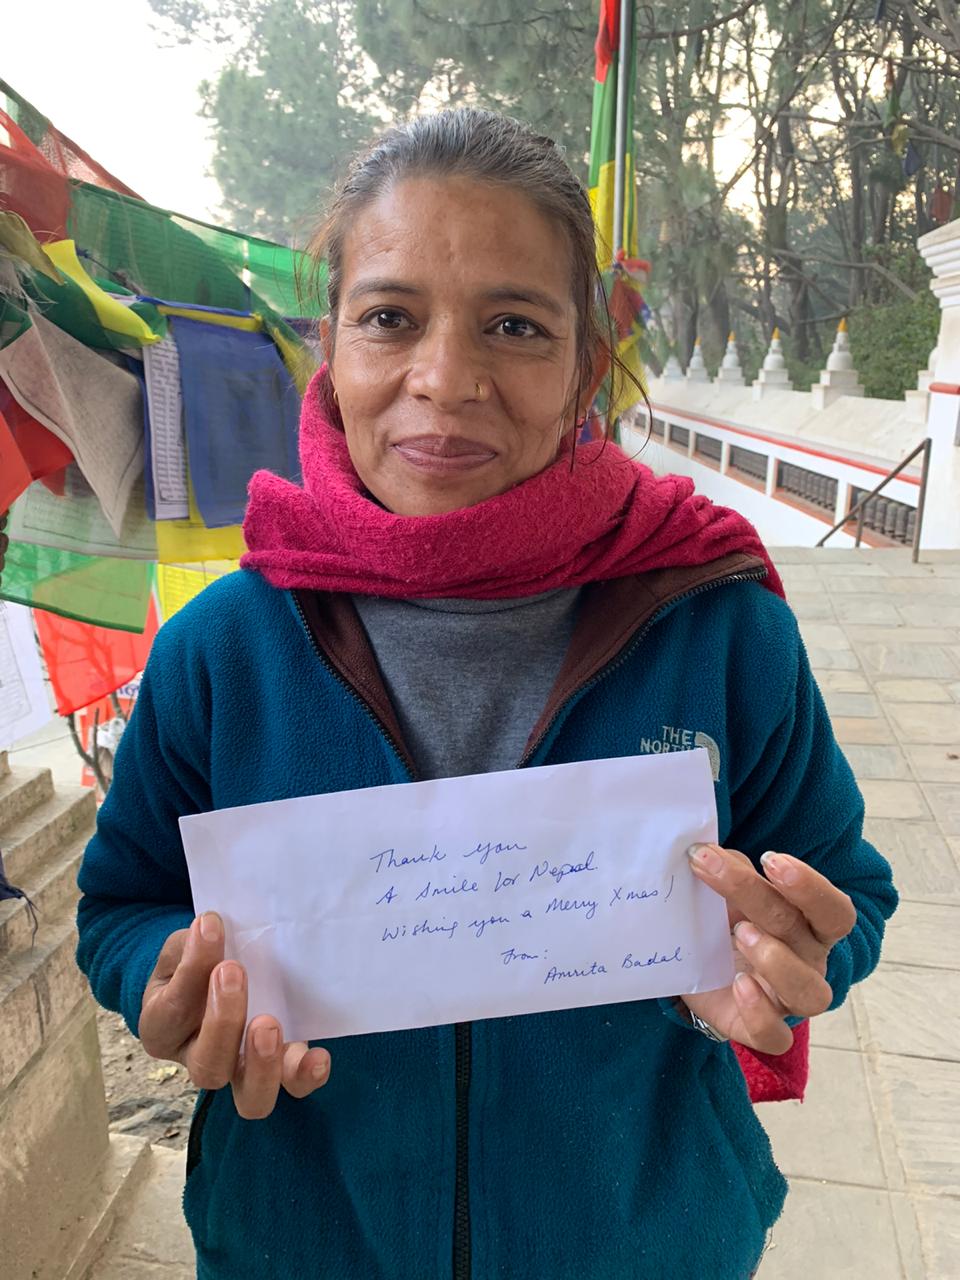 THE
NORTH
Thank you
A Smile for Nepal.
Wishing you a Merry Xmas!
From:
Amrita Badal.